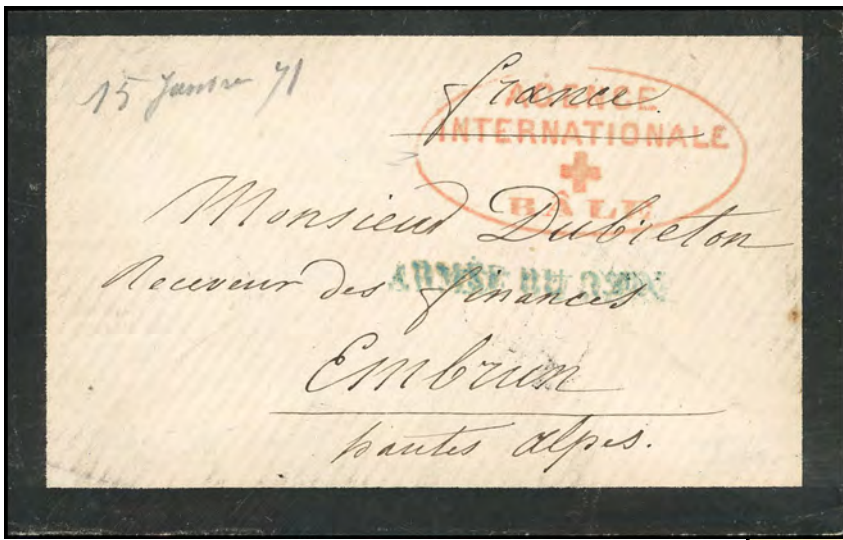 15 Janvier 71
france.
AGENCE
INTERNATIONALE
BÂLE
Monsieur Dubieton
ARMÉE DU
Receveur des finances
Embrun
hautes alpes.